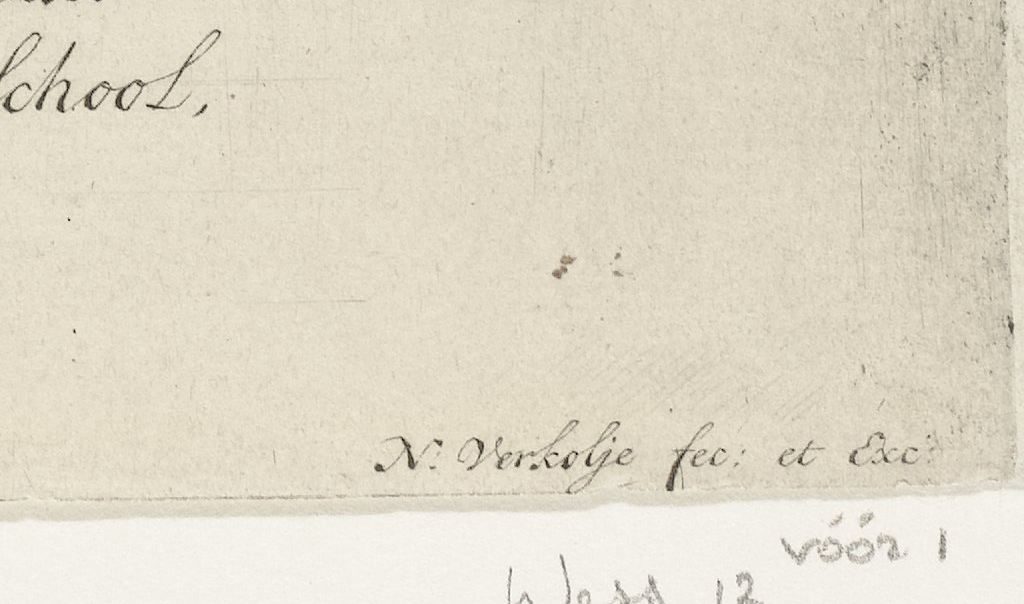 School,
N: Verkolje fec: et Exc:
vóór 1
Wess 12